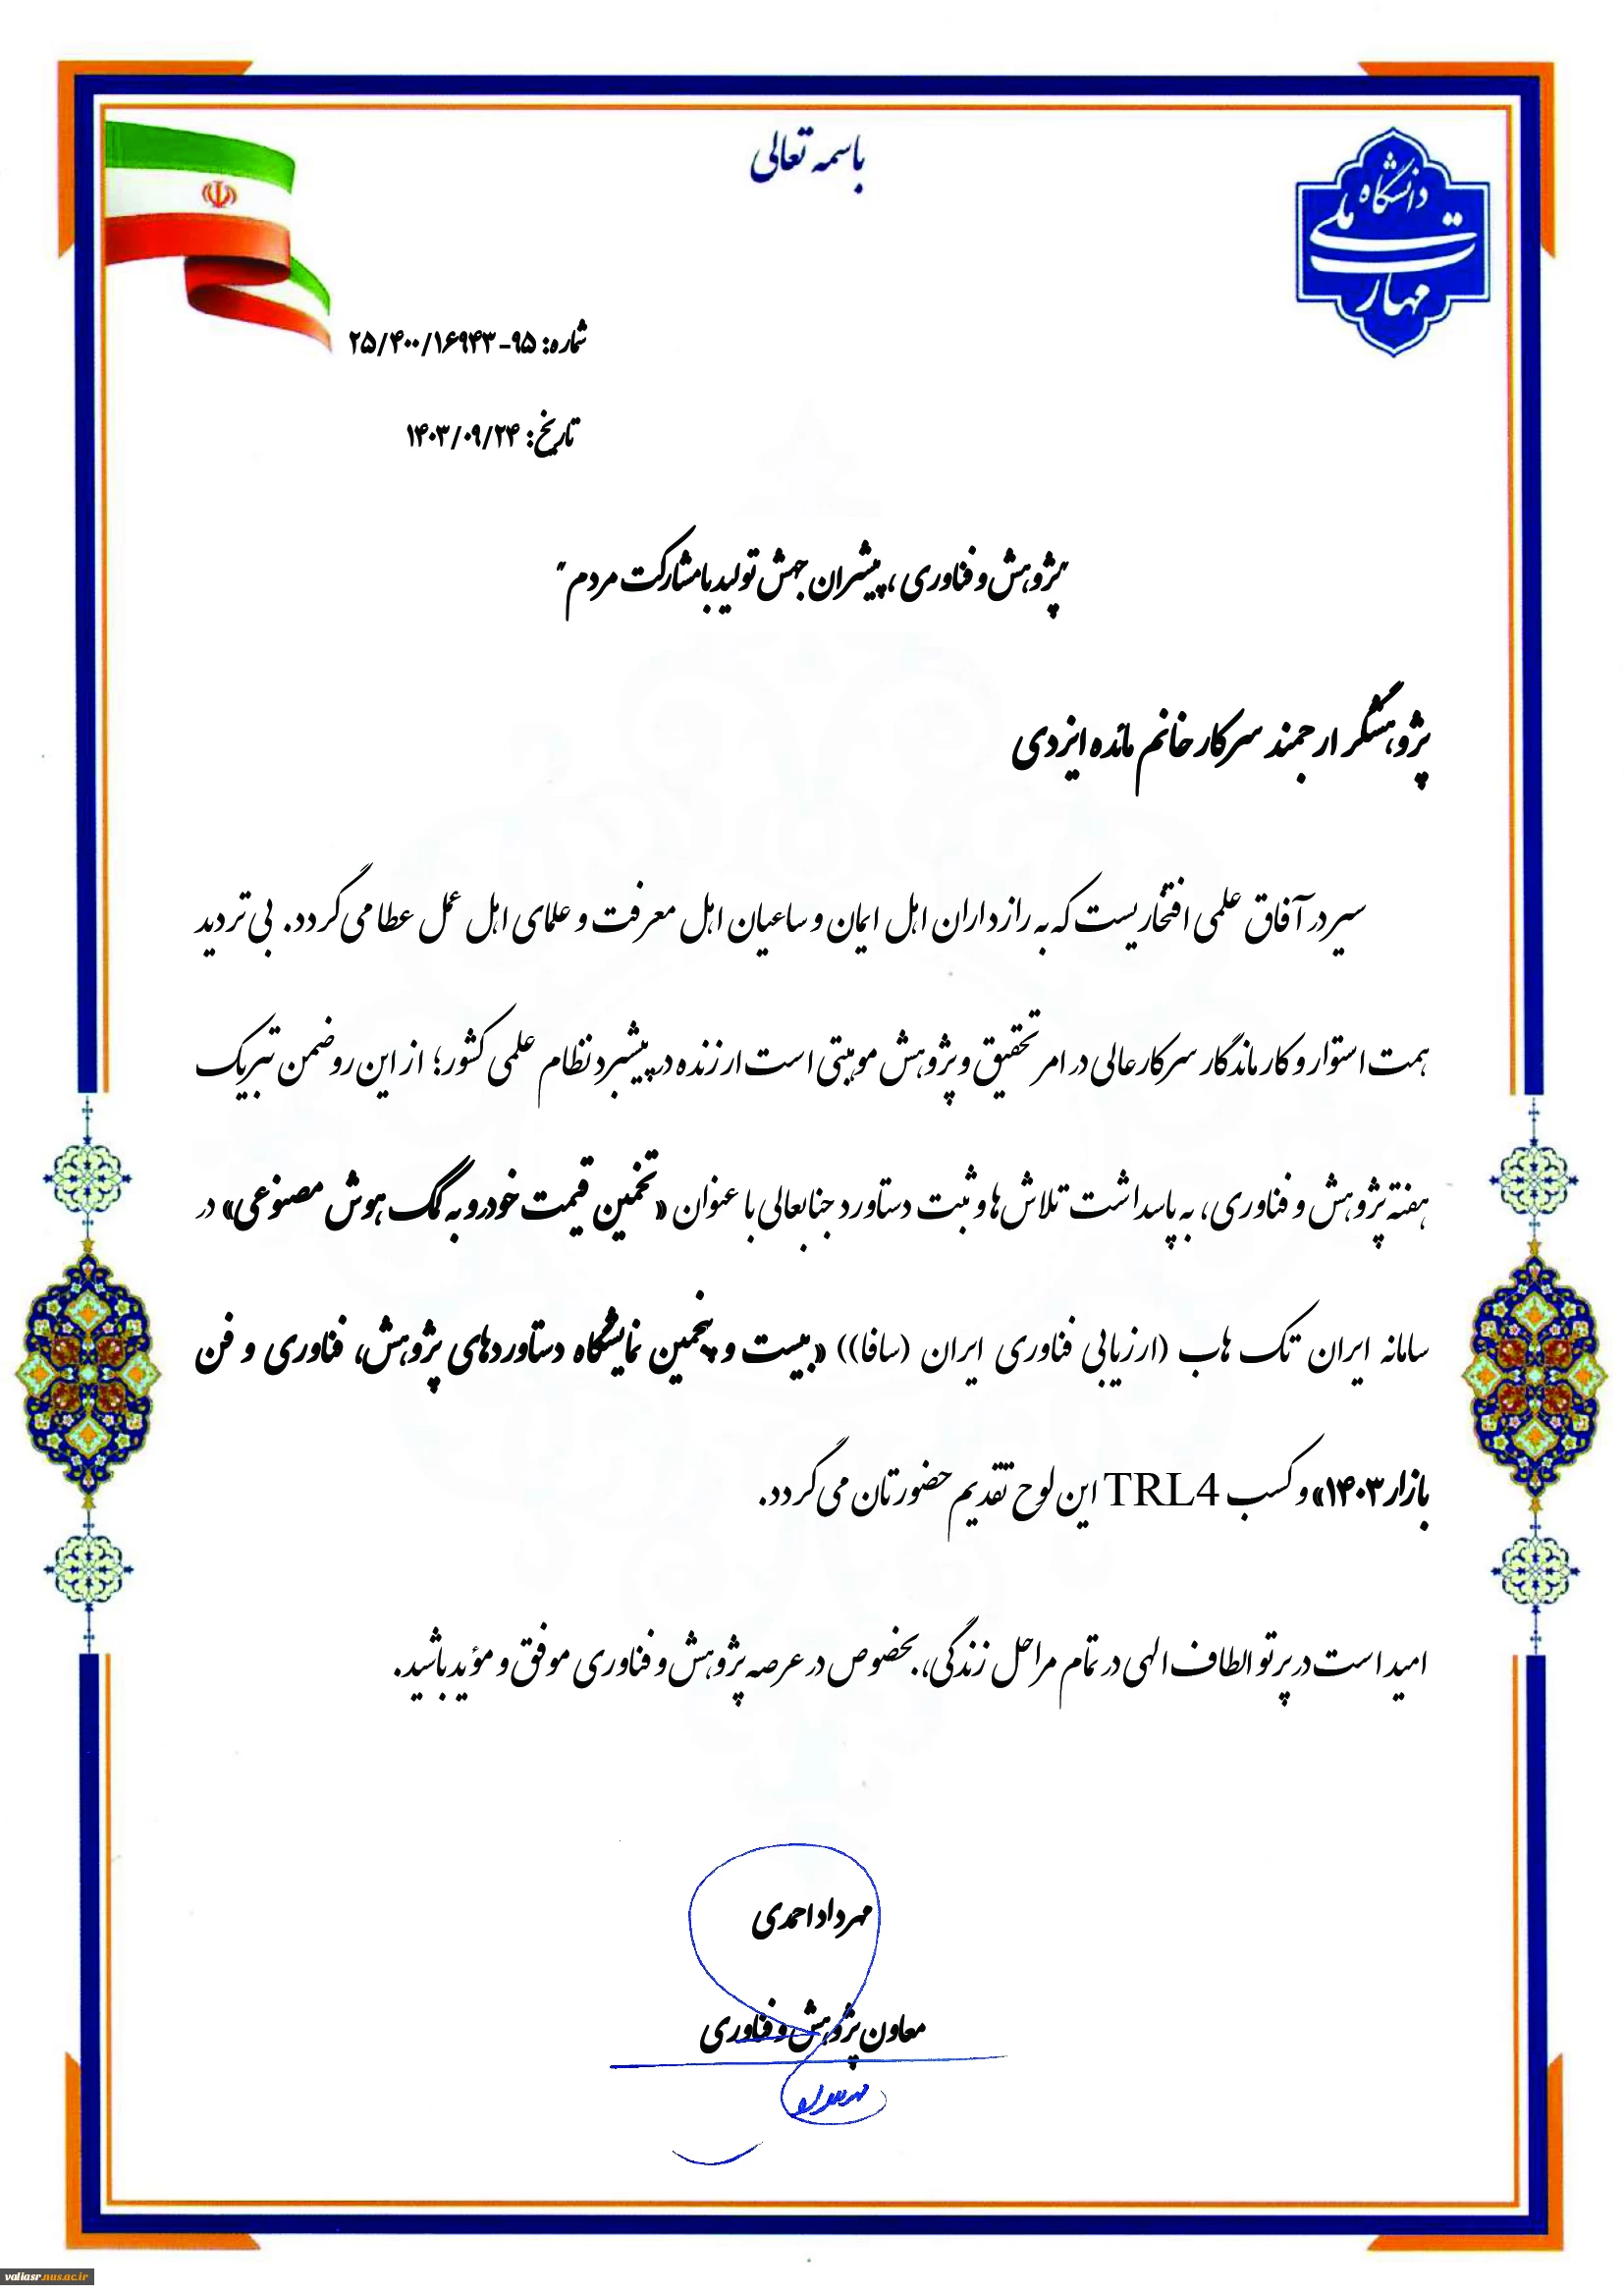 باسمه تعالی
دانشگاه ملی مهارت
شماره: ۹۵-۲۵/۴۰۰/۱۶۹۴۳
تاریخ: ۱۴۰۳/۰۹/۲۴
"پژوهش و فناوری، پیشران جهش تولید با مشارکت مردم"
پژوهشگر ارجمند سرکار خانم مائده ایزدی
سیر در آفاق علمی افتخاریست که به رازداران اهل ایمان و ساعیان اهل معرفت و علمای اهل عمل عطا می گردد. بی تردید
همت استوار و کار ماندگار سرکار عالی در امر تحقیق و پژوهش موهبتی است ارزنده در پیشبرد نظام علمی کشور؛ از این رو ضمن تبریک
هفته پژوهش و فناوری، به پاسداشت تلاش ها و ثبت دستاورد جنابعالی با عنوان «تخمین قیمت خودرو به کمک هوش مصنوعی» در
سامانه ایران تک هاب (ارزیابی فناوری ایران (سافا)) «بیست و پنجمین نمایشگاه دستاوردهای پژوهش، فناوری و فن
بازار ۱۴۰۳» و کسب TRL4 این لوح تقدیم حضورتان می گردد.
امید است در پرتو الطاف الهی در تمام مراحل زندگی، بخصوص در عرصه پژوهش و فناوری موفق و مؤید باشید.
مهرداد احمدی
معاون پژوهش و فناوری
valiasr.nus.ac.ir